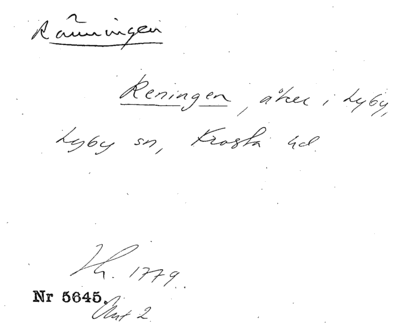 Ränningen
Reningen, åker i Lyby,
Lyby sn, Frosta hd
1779.
Nr 5645.
2